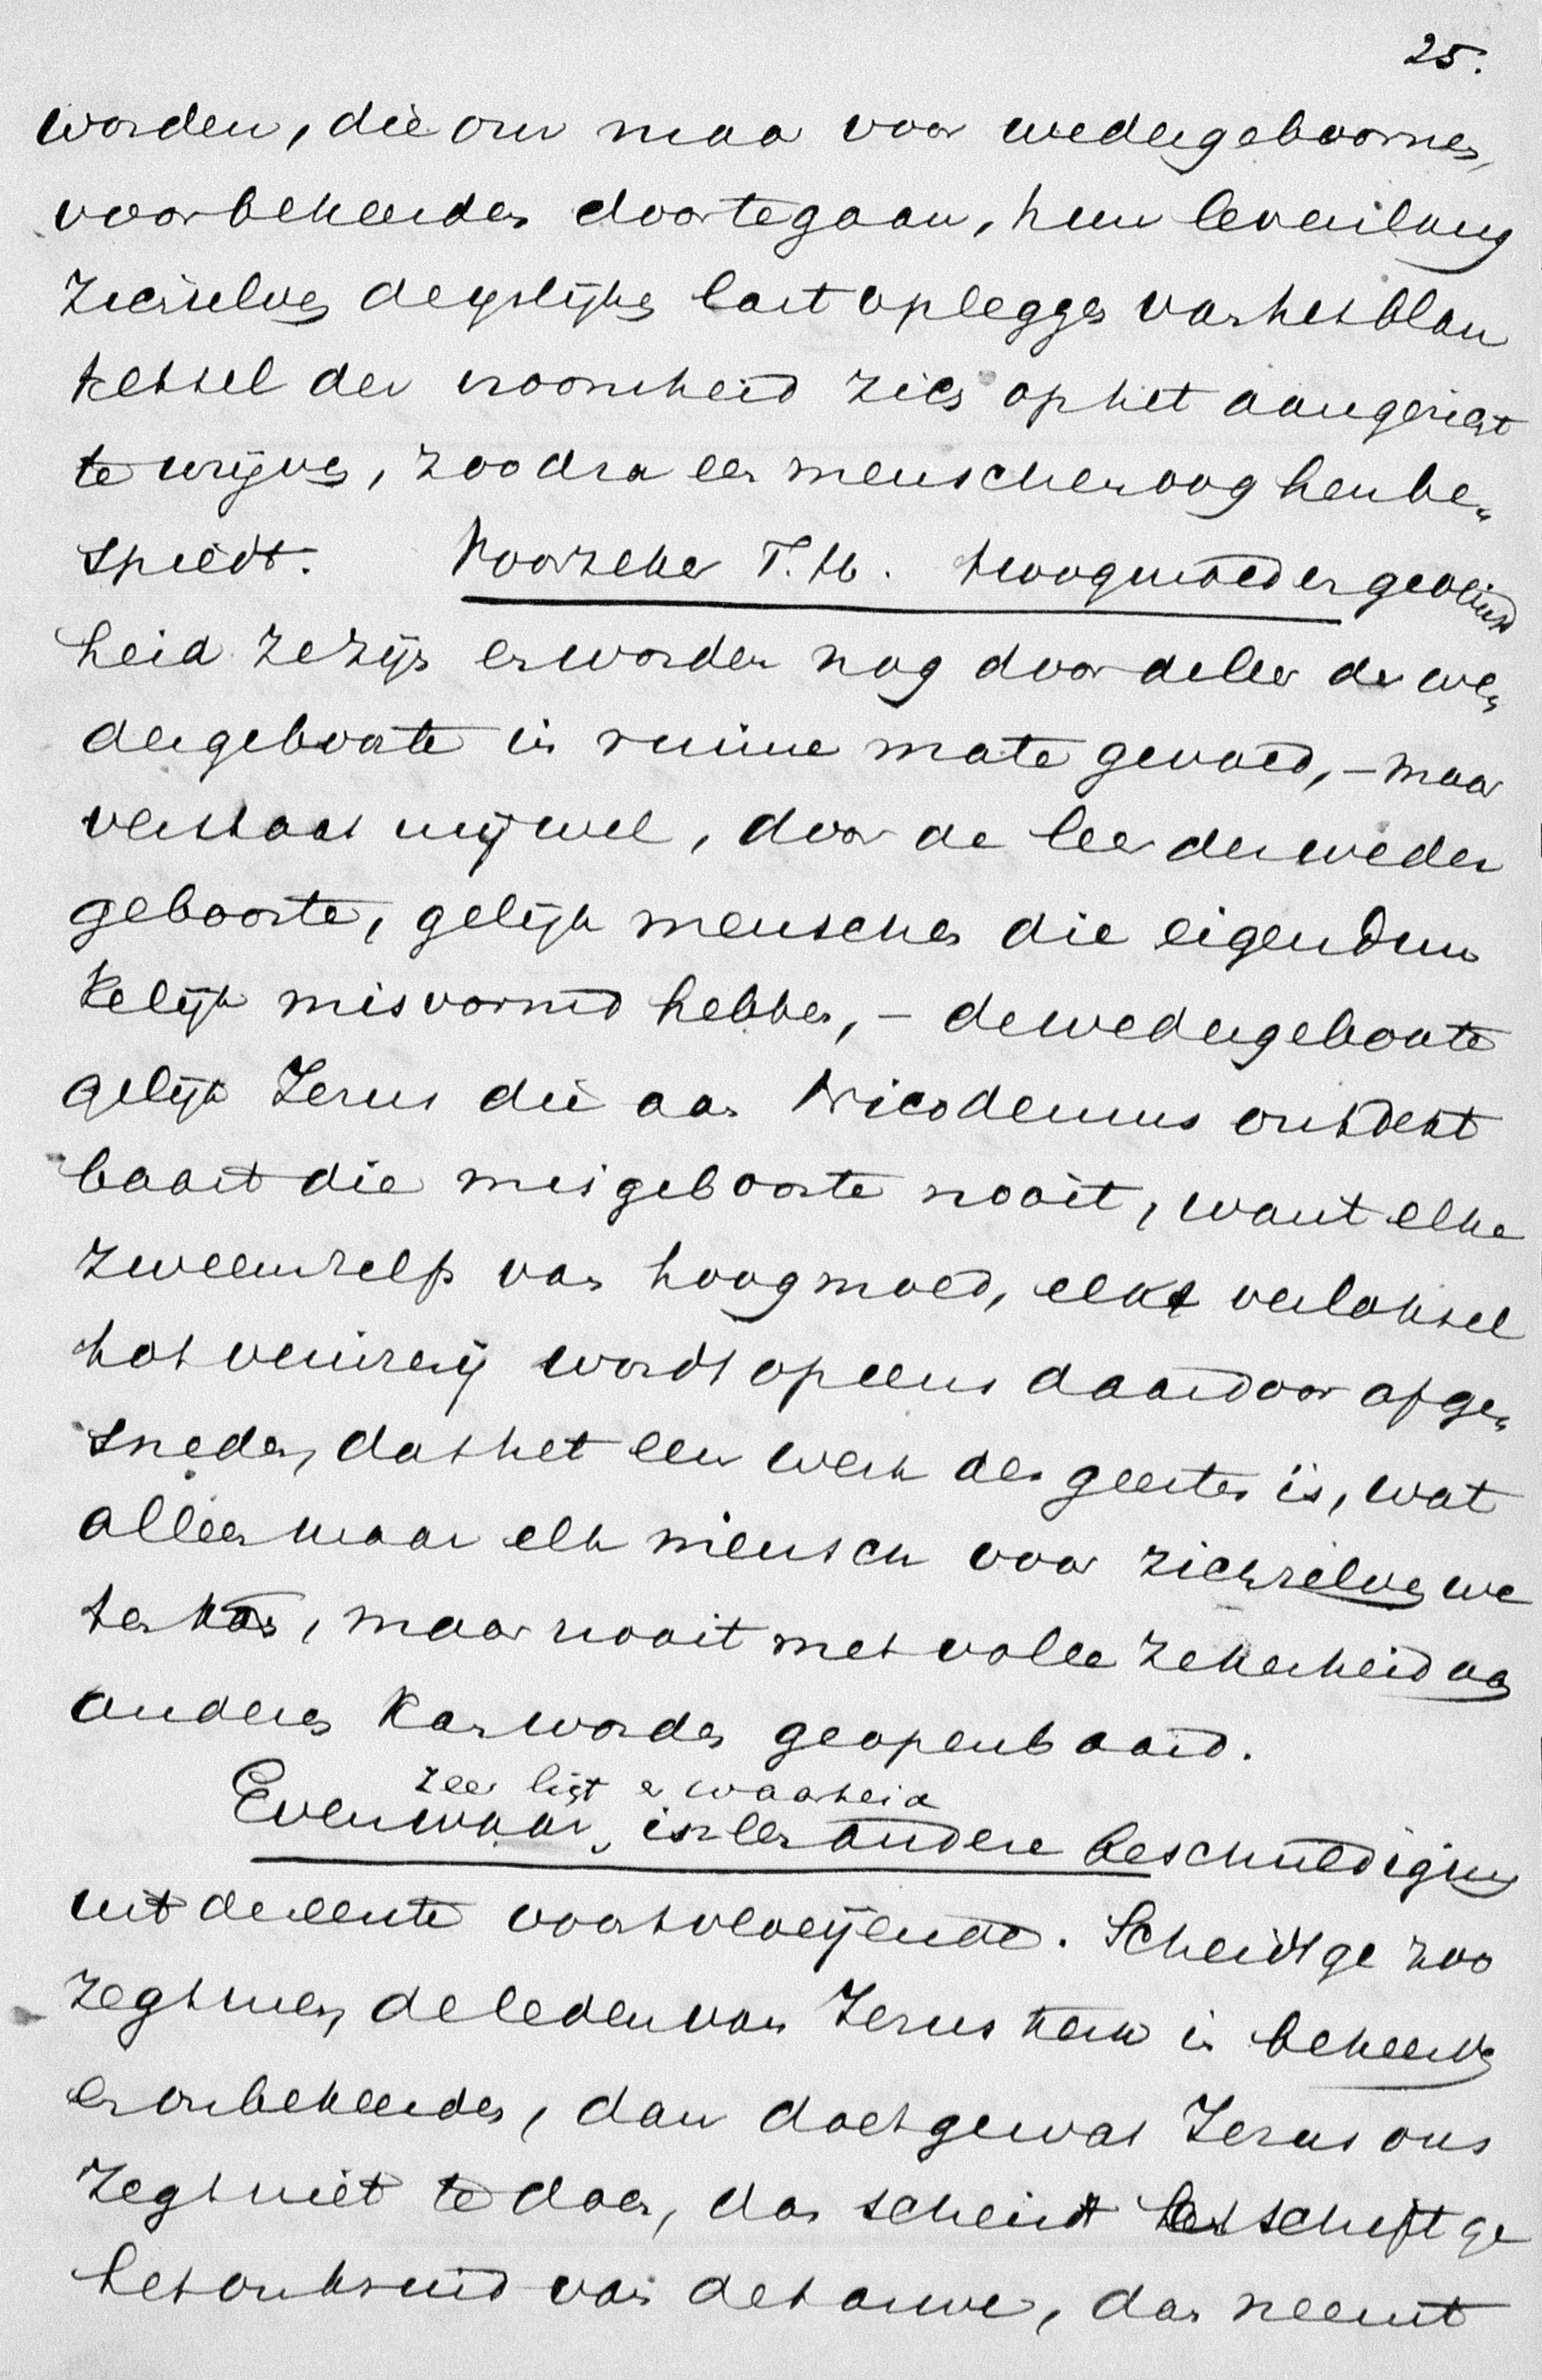 25.
worden, die om maa voor wedergeboornen,
voor bekeerden doortegaan, hun levenlang
zichselven dagelijks last opleggen van het blan
ketsel der vroomheid zich op het aangezicht
te wrijven, zoodra een menschenoog hen be„
spiedt. Voorzeker T. H. hoogmoed en geveinsd
heid ze zijn en worden nog door de leer der we„
dergeboorte in ruime mate gevoed, – maar
verstaat mij wel, door de leer der weder
geboorte, gelijk menschen die eigendun
kelijk misvormd hebben, – de wedergeboorte
gelijk Jezus die aan Nicodemus ontdekt
baart die misgeboorte nooit, want elke
zweem zelfs van hoogmoed, elk verloksel
tot veinzerij wordt opeens daardoor afge„
sneden, dat het een werk des geestes is, wat
alleen maar elk mensch voor zichzelven we
ten kan, maar nooit met volle zekerheid aan
anderen kan worden geopenbaard.
zeer list & waarheid
Evenwaar, is een andere beschuldiging
uit de eerste voortvloeijende. Scheidt ge zoo
zegt men, de leden van Jezus kerk in bekeerden
en onbekeerden, dan doet ge wat Jezus ons
zegt niet te doen, dan scheidt het schift ge
het onkruid van de tarwe, dan neemt